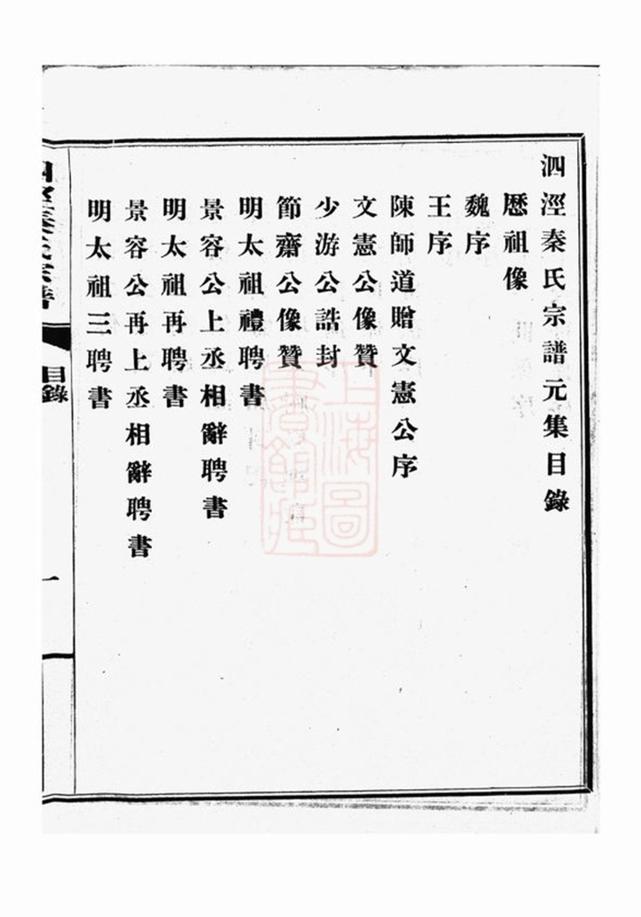 泗涇秦氏宗譜元集目錄
歷祖像
魏序
王序
陳師道贈文憲公序
文憲公像贊
少游公誥封
節齋公像贊
明太祖禮聘書
景容公上丞相辭聘書
明太祖再聘書
景容公再上丞相辭聘書
明太祖三聘書
泗涇秦氏宗譜
目錄
一
上海圖書館藏